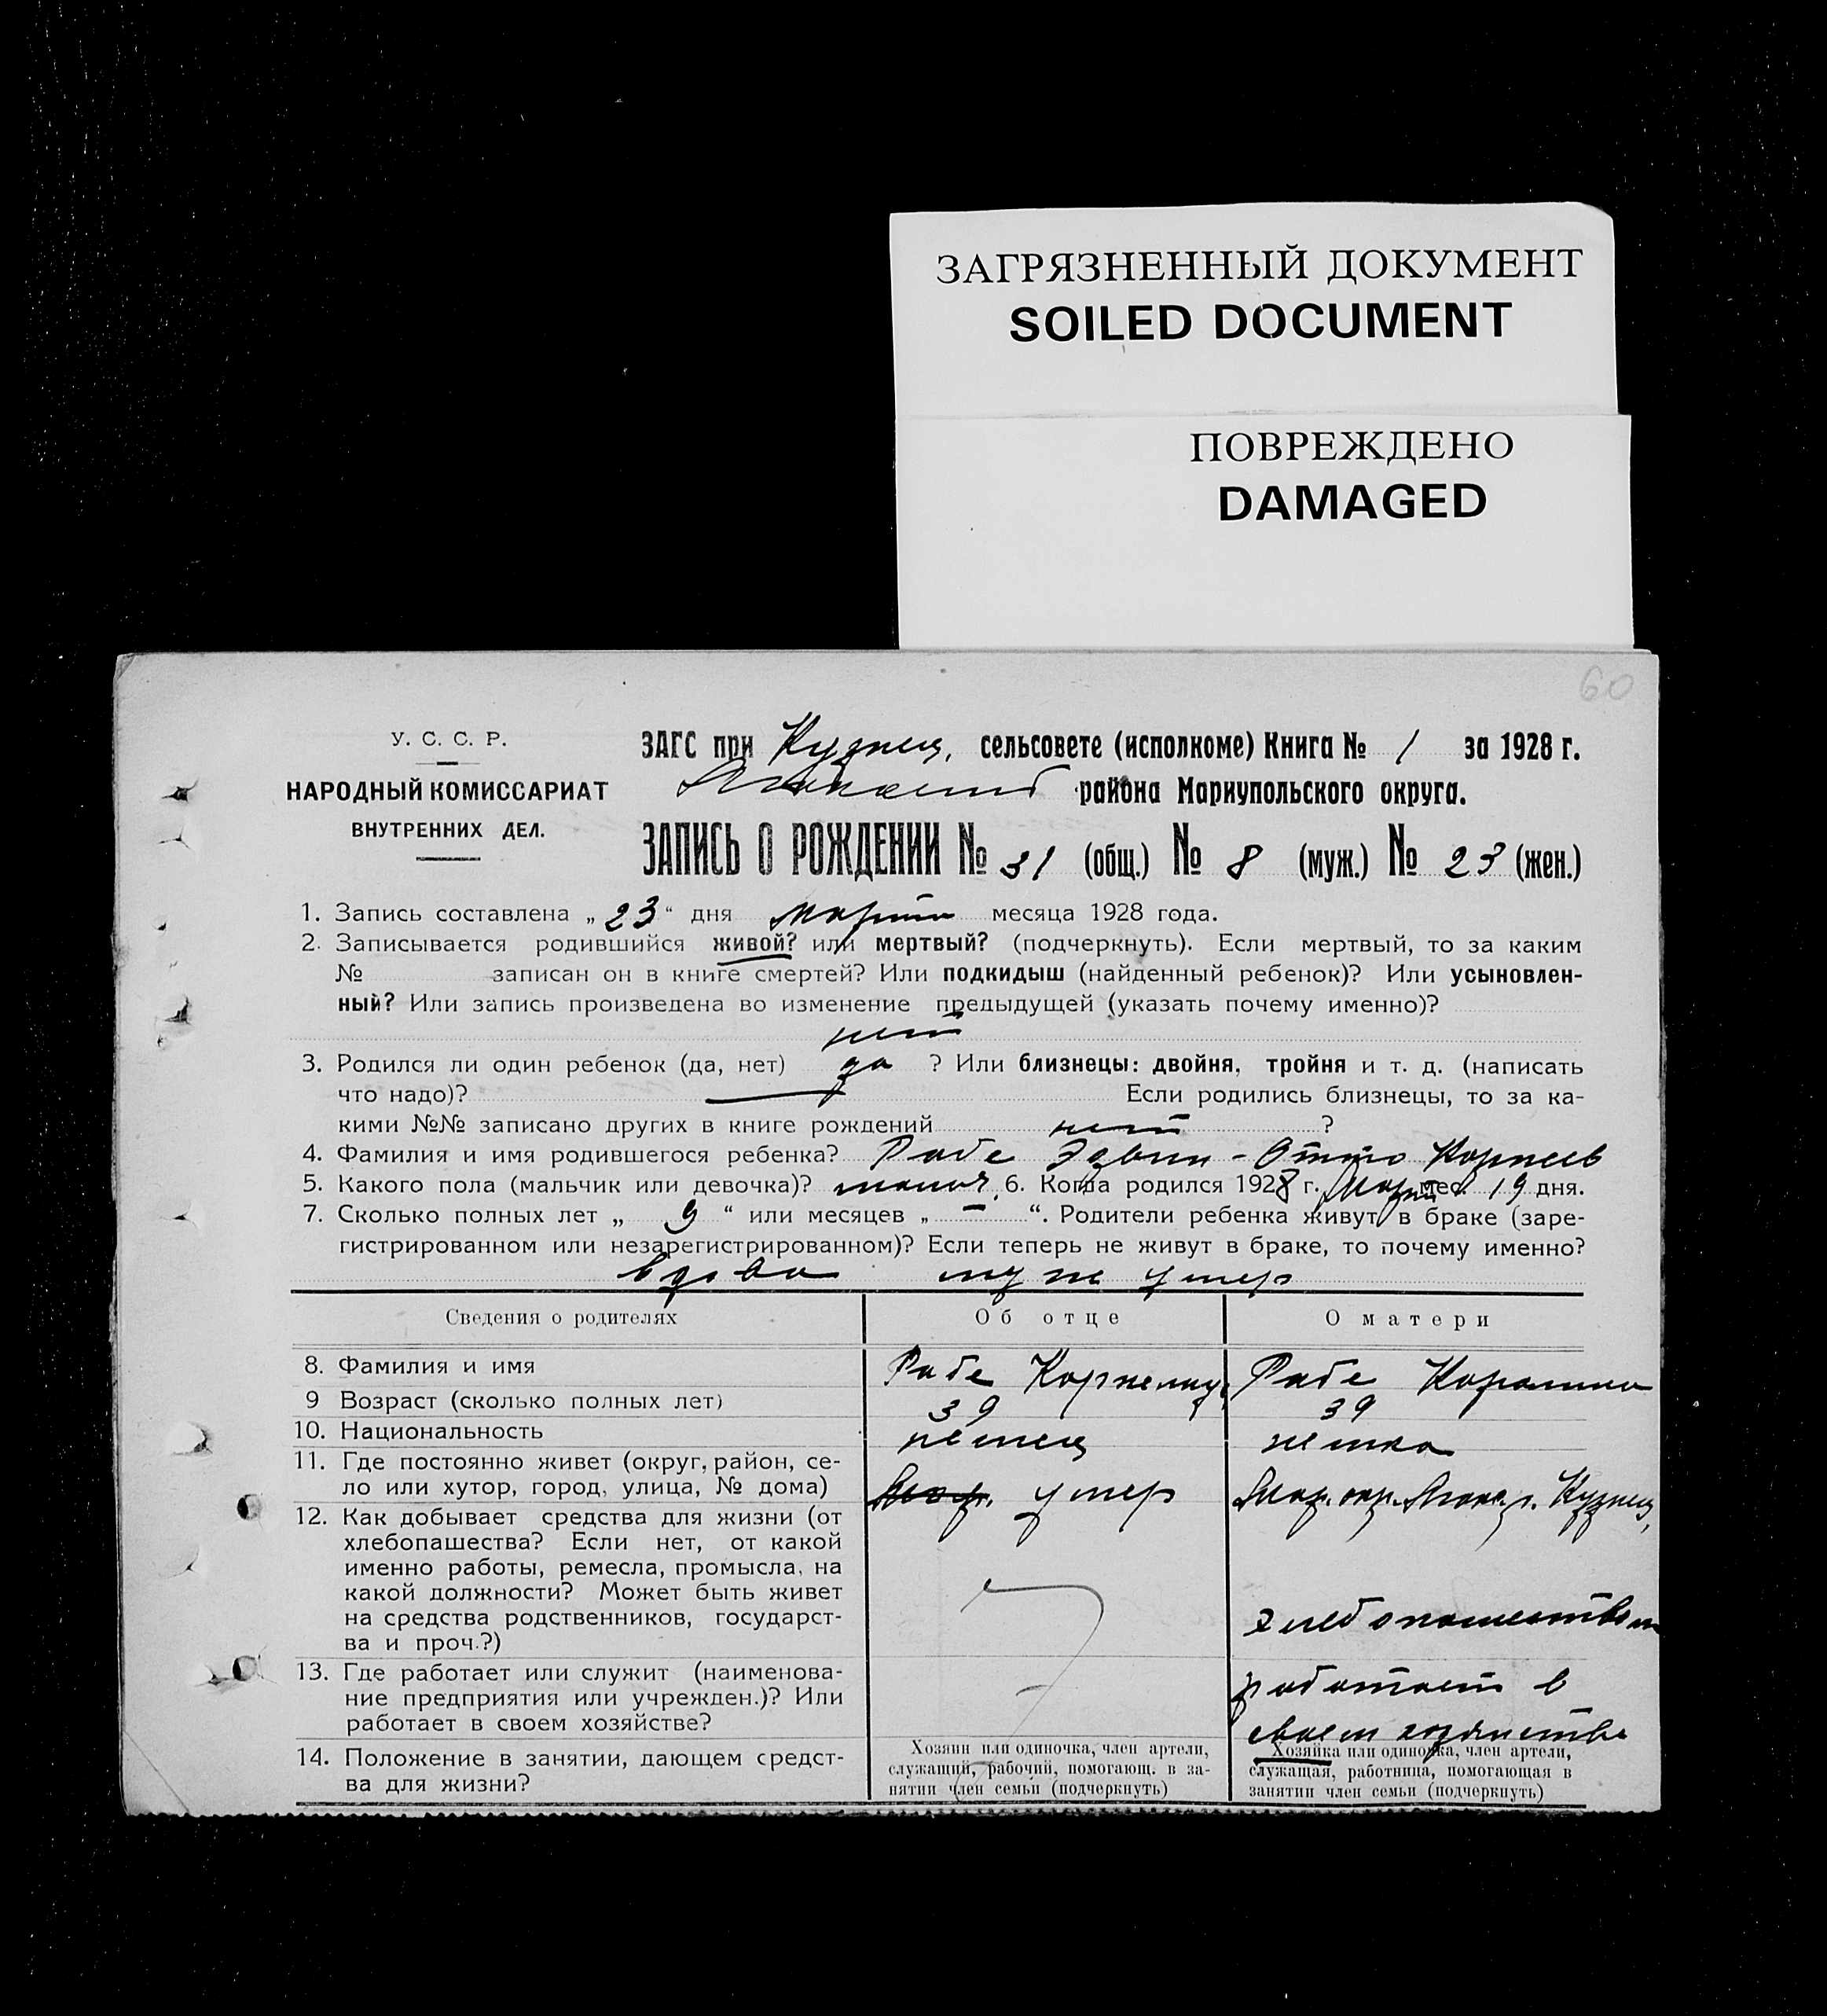 ЗАГРЯЗНЕННЫЙ ДОКУМЕНТ
SOILED DOCUMENT
ПОВРЕЖДЕНО
DAMAGED
60
У. С. С. Р.
НАРОДНЫЙ КОМИССАРИАТ
ВНУТРЕННИХ ДЕЛ.
ЗАГС при Кузнец. сельсовете (исполкоме) Книга № 1 за 1928 г.
района Мариупольского округа.
ЗАПИСЬ О РОЖДЕНИИ № 31 (общ.) № 8 (муж.) № 23 (жен.)
1. Запись составлена „ 23 “ дня марта месяца 1928 года.
2. Записывается родившийся живой? или мертвый? (подчеркнуть). Если мертвый, то за каким
№ записан он в книге смертей? Или подкидыш (найденный ребенок)? Или усыновлен-
ный? Или запись произведена во изменение предыдущей (указать почему именно)?
нет
3. Родился ли один ребенок (да, нет) да ? Или близнецы: двойня, тройня и т. д. (написать
что надо)? — Если родились близнецы, то за ка-
кими №№ записано других в книге рождений нет ?
4. Фамилия и имя родившегося ребенка? Рабе Эдвин - Отто Корнеев
5. Какого пола (мальчик или девочка)? мальч. 6. Когда родился 1928 г. Март мес. 19 дня.
7. Сколько полных лет „ 9 “ или месяцев „ — “. Родители ребенка живут в браке (заре-
гистрированном или незарегистрированном)? Если теперь не живут в браке, то почему именно?
вдова муж умер
Сведения о родителях Об отце О матери
8. Фамилия и имя Рабе Рабе Каролина
9 Возраст (сколько полных лет) 39 39
10. Национальность немец немка
11. Где постоянно живет (округ, район, се-
ло или хутор, город, улица, № дома) умер Мар. окр. Кузнец,
12. Как добывает средства для жизни (от
хлебопашества? Если нет, от какой
именно работы, ремесла, промысла, на
какой должности? Может быть живет
на средства родственников, государст-
ва и проч.?) хлебопашеством
13. Где работает или служит (наименова-
ние предприятия или учрежден.)? Или
работает в своем хозяйстве? работает в
своем хозяйстве
14. Положение в занятии, дающем средст-
ва для жизни?
Хозяин или одиночка, член артели,
служащий, рабочий, помогающ. в за-
нятии член семьи (подчеркнуть)
Хозяйка или одиночка, член артели,
служащая, работница, помогающая в
занятии член семьи (подчеркнуть)